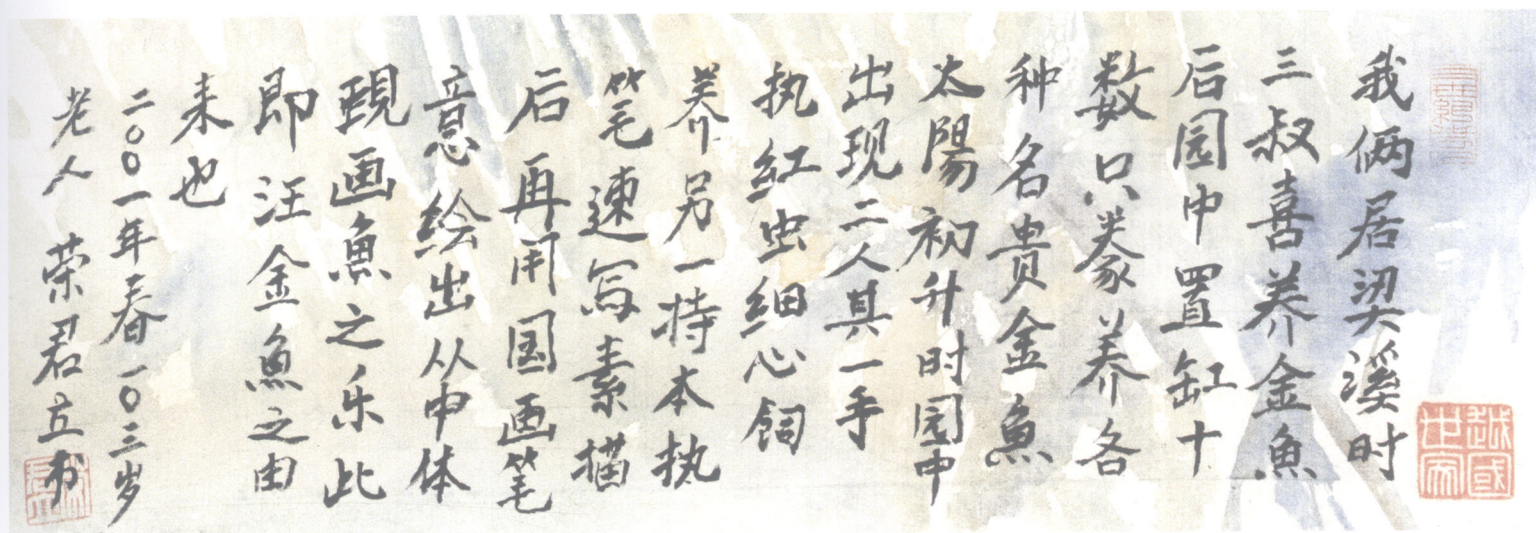 越國世家
我俩居梁溪时
三叔喜养金魚
后园中置缸十
数只豢养各
种名贵金魚
太陽初升时园中
出现二人其一手
执紅虫细心饲
养另一持本执
笔速写素描
后再用国画笔
意绘出从中体
現画魚之乐此
即汪金魚之由
来也
二〇〇一年春一〇三岁
老人 荣君立书